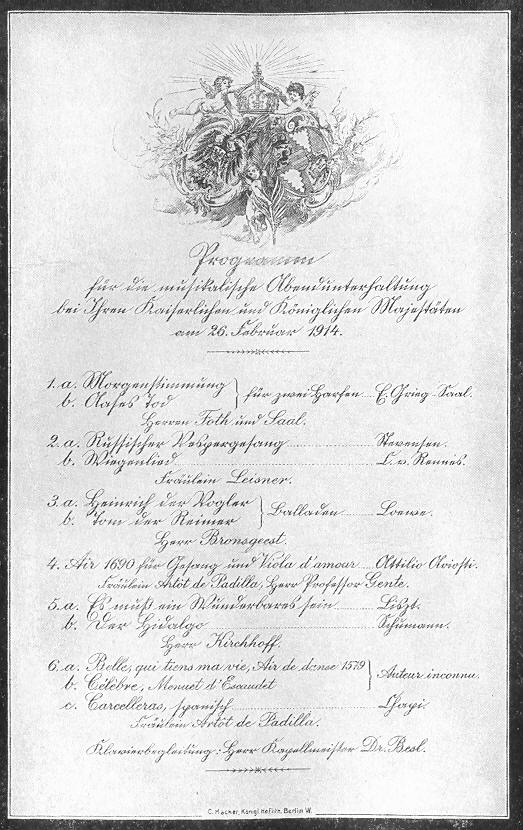 Programm
für die musikalische Abendunterhaltung
bei Ihren Kaiserlichen und Königlichen Majestäten
am 26. Februar 1914.
1. a. Morgenstimmung } für zwei Harfen E. Grieg-Saal.
b. Aases Tod
Herren Foth und Saal.
2. a. Russischer Vespergesang Stevensen.
b. Wiegenlied C. v. Rennés.
Fräulein Leisner.
3. a. Heinrich der Vogler } Balladen Loewe.
b. Tom der Reimer
Herr Bronsgeest.
4. Air 1690 für Gesang und Viola d'amour Attilio Ariosti.
Fräulein Artôt de Padilla, Herr Professor Gente.
5. a. Es muß ein Wunderbares sein Liszt.
b. Der Hidalgo Schumann.
Herr Kirchhoff.
6. a. Belle, qui tiens ma vie, Air de danse 1579 } Auteur inconnu.
b. Célèbre, Menuet d'Exaudet
c. Carcelleras, spanisch Chapi.
Fräulein Artôt de Padilla.
Klavierbegleitung: Herr Kapellmeister Dr. Besl.
Berlin W.